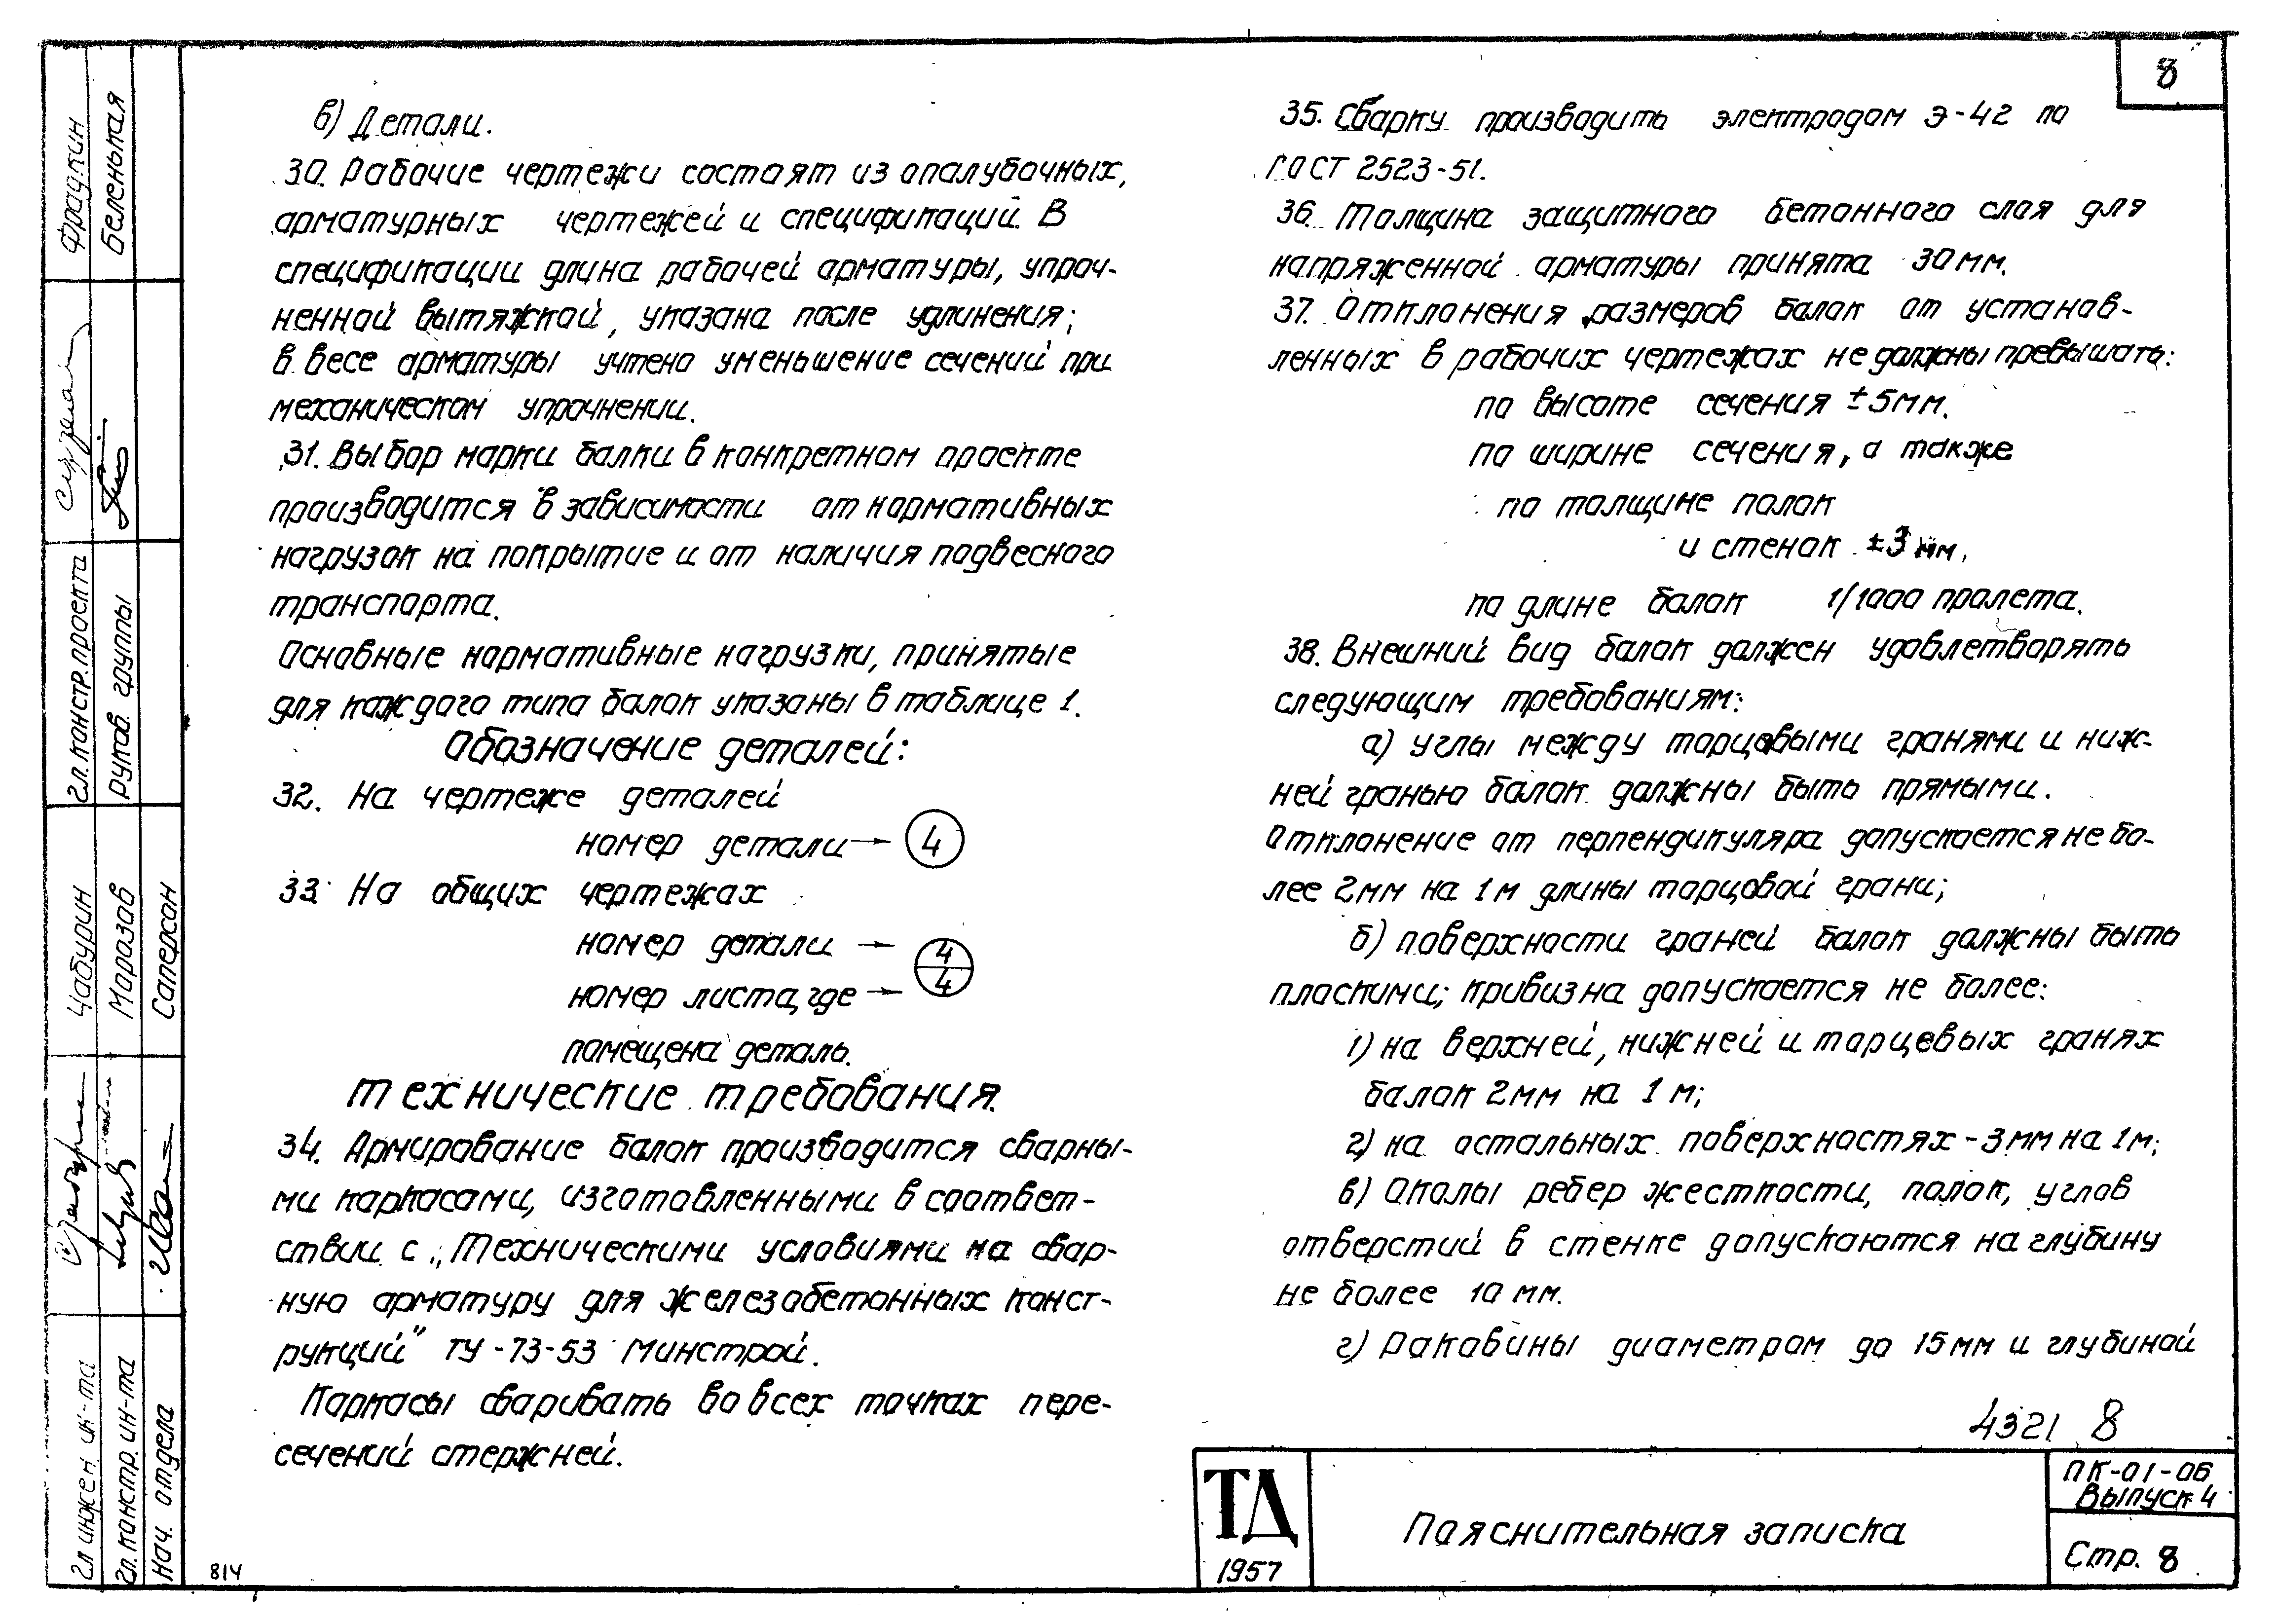 8
в) Детали.
30. Рабочие чертежи состоят из опалубочных,
арматурных чертежей и спецификаций. В
спецификации длина рабочей арматуры, упроч-
ненной вытяжкой, указана после удлинения;
в весе арматуры учтено уменьшение сечений при
механическом упрочнении.
31. Выбор марки балки в конкретном проекте
производится в зависимости от нормативных
нагрузок на покрытие и от наличия подвесного
транспорта.
Основные нормативные нагрузки, принятые
для каждого типа балок указаны в таблице 1.
Обозначение деталей:
32. На чертеже деталей
номер детали → 4
33. На общих чертежах
номер детали → 4
номер листа, где → 4
помещена деталь.
Технические требования.
34. Армирование балок производится сварны-
ми каркасами, изготовленными в соответ-
ствии с „Техническими условиями на свар-
ную арматуру для железобетонных конст-
рукций" ТУ-73-53 Минстрой.
Каркасы сваривать во всех точках пере-
сечений стержней.
35. Сварку производить электродом Э-42 по
ГОСТ 2523-51.
36. Толщина защитного бетонного слоя для
напряженной арматуры принята 30мм.
37. Отклонения размеров балок от установ-
ленных в рабочих чертежах не должны превышать:
по высоте сечения ±5мм.
по ширине сечения, а также
по толщине полок
и стенок ±3мм,
по длине балок 1/1000 пролета.
38. Внешний вид балок должен удовлетворять
следующим требованиям:
а) углы между торцовыми гранями и ниж-
ней гранью балок должны быть прямыми.
Отклонение от перпендикуляра допускается не бо-
лее 2мм на 1м длины торцовой грани;
б) поверхности граней балок должны быть
плоскими; кривизна допускается не более:
1) на верхней, нижней и торцевых гранях
балок 2мм на 1м;
2) на остальных поверхностях-3мм на 1м;
в) Околы ребер жесткости, полок, углов
отверстий в стенке допускаются на глубину
не более 10 мм.
г) Раковины диаметром до 15мм и глубиной
4321 8
ТД
1957
Пояснительная записка
ПК-01-06
Выпуск 4
Стр. 8
814
Фрадкин
Беленькая
Гл. констр. проекта
Руков. группы
Чабурин
Морозов
Саперсон
Гл инжен. ин-та
Гл. констр. ин-та
Нач. отдела